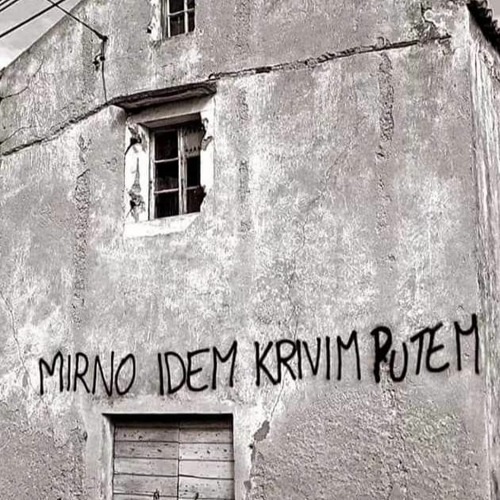 MIRNO IDEM KRIVIM PUTEM